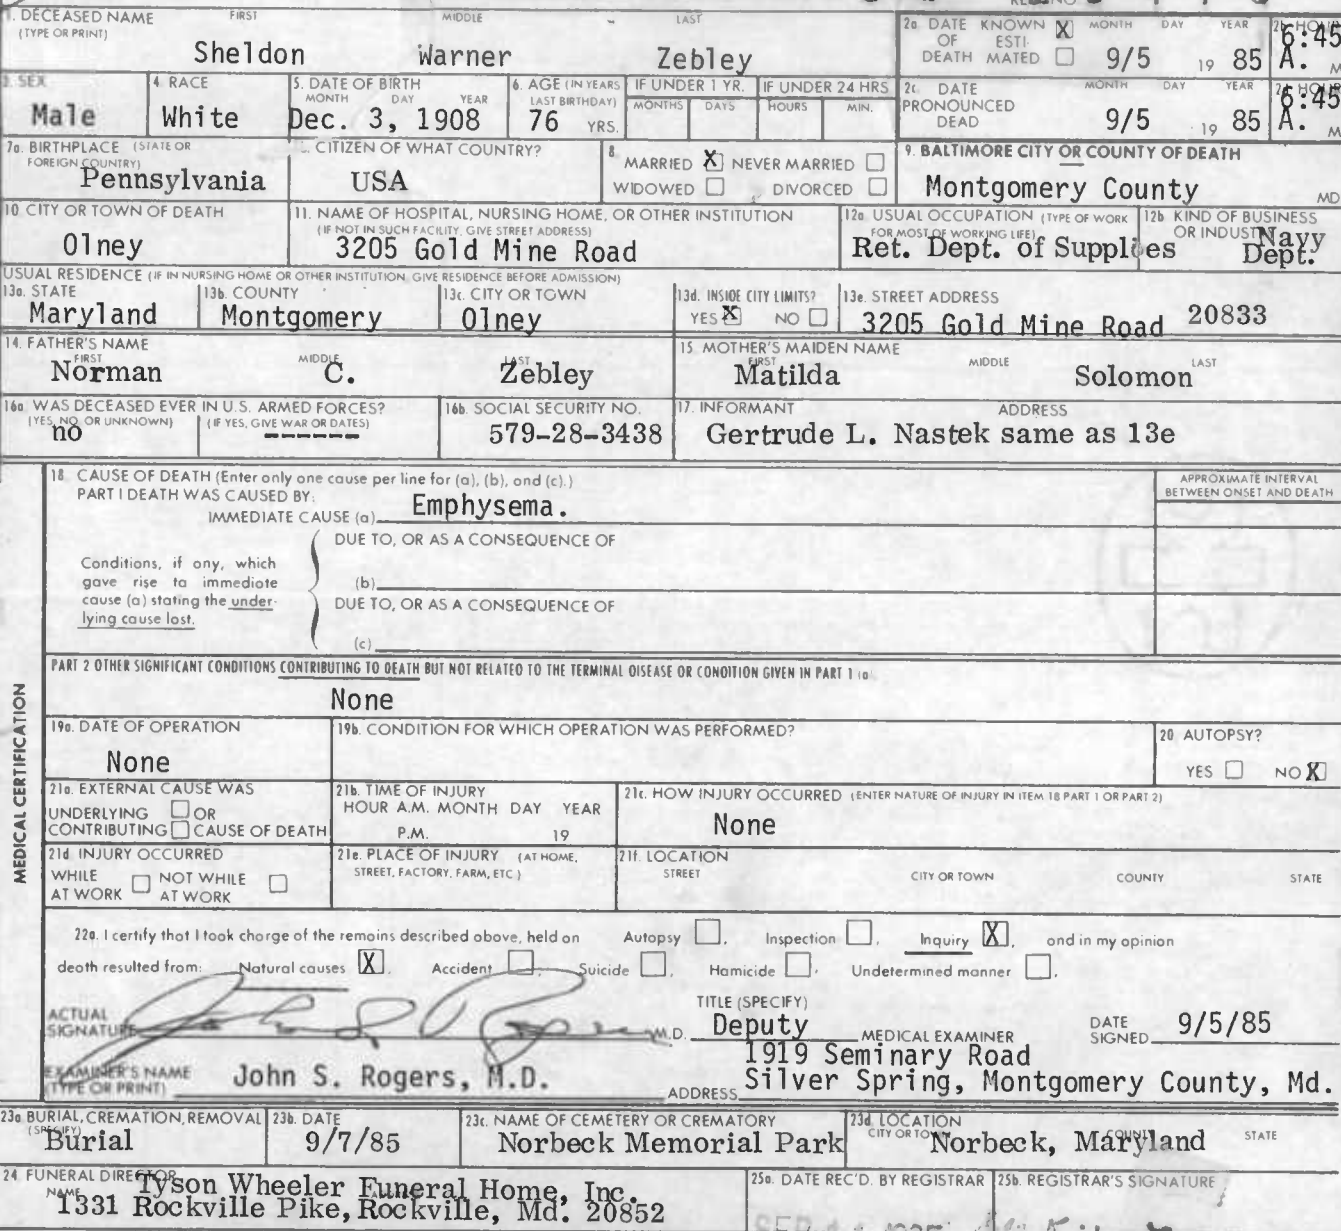 1. DECEASED NAME FIRST MIDDLE LAST
(TYPE OR PRINT)
Sheldon Warner Zebley
2a. DATE KNOWN X MONTH DAY YEAR
OF ESTI-
DEATH MATED 9/5 19 85
2b. HOUR
6:45
A. M
3. SEX
Male
4. RACE
White
5. DATE OF BIRTH
MONTH DAY YEAR
Dec. 3, 1908
6. AGE (IN YEARS
LAST BIRTHDAY)
76 YRS.
IF UNDER 1 YR.
MONTHS DAYS
IF UNDER 24 HRS
HOURS MIN.
2c. DATE MONTH DAY YEAR
PRONOUNCED
DEAD 9/5 19 85
2d. HOUR
6:45
A. M
7a. BIRTHPLACE (STATE OR
FOREIGN COUNTRY)
Pennsylvania
CITIZEN OF WHAT COUNTRY?
USA
8.
MARRIED X NEVER MARRIED
WIDOWED DIVORCED
9. BALTIMORE CITY OR COUNTY OF DEATH
Montgomery County MD
10. CITY OR TOWN OF DEATH
Olney
11. NAME OF HOSPITAL, NURSING HOME, OR OTHER INSTITUTION
(IF NOT IN SUCH FACILITY, GIVE STREET ADDRESS)
3205 Gold Mine Road
12a. USUAL OCCUPATION (TYPE OF WORK
FOR MOST OF WORKING LIFE)
Ret. Dept. of Supplies
12b. KIND OF BUSINESS
OR INDUST
Navy
Dept.
USUAL RESIDENCE (IF IN NURSING HOME OR OTHER INSTITUTION, GIVE RESIDENCE BEFORE ADMISSION)
13a. STATE
Maryland
13b. COUNTY
Montgomery
13c. CITY OR TOWN
Olney
13d. INSIDE CITY LIMITS?
YES X NO
13e. STREET ADDRESS
3205 Gold Mine Road 20833
14. FATHER'S NAME
FIRST MIDDLE LAST
Norman C. Zebley
15. MOTHER'S MAIDEN NAME
FIRST MIDDLE LAST
Matilda Solomon
16a. WAS DECEASED EVER IN U.S. ARMED FORCES?
(YES, NO, OR UNKNOWN) (IF YES, GIVE WAR OR DATES)
no ------
16b. SOCIAL SECURITY NO.
579-28-3438
17. INFORMANT ADDRESS
Gertrude L. Nastek same as 13e
MEDICAL CERTIFICATION
18. CAUSE OF DEATH (Enter only one cause per line for (a), (b), and (c).)
PART I DEATH WAS CAUSED BY:
IMMEDIATE CAUSE (a) Emphysema.
APPROXIMATE INTERVAL
BETWEEN ONSET AND DEATH
DUE TO, OR AS A CONSEQUENCE OF
Conditions, if any, which
gave rise to immediate
cause (a) stating the under-
lying cause last.
(b)
DUE TO, OR AS A CONSEQUENCE OF
(c)
PART 2 OTHER SIGNIFICANT CONDITIONS CONTRIBUTING TO DEATH BUT NOT RELATED TO THE TERMINAL DISEASE OR CONDITION GIVEN IN PART 1 (a)
None
19a. DATE OF OPERATION
None
19b. CONDITION FOR WHICH OPERATION WAS PERFORMED?
20. AUTOPSY?
YES NO X
21a. EXTERNAL CAUSE WAS
UNDERLYING OR
CONTRIBUTING CAUSE OF DEATH
21b. TIME OF INJURY
HOUR A.M. MONTH DAY YEAR
P.M. 19
21c. HOW INJURY OCCURRED (ENTER NATURE OF INJURY IN ITEM 18 PART 1 OR PART 2)
None
21d. INJURY OCCURRED
WHILE NOT WHILE
AT WORK AT WORK
21e. PLACE OF INJURY (AT HOME,
STREET, FACTORY, FARM, ETC.)
21f. LOCATION
STREET CITY OR TOWN COUNTY STATE
22a. I certify that I took charge of the remains described above, held on Autopsy , Inspection , Inquiry X , and in my opinion
death resulted from: Natural causes X , Accident , Suicide , Homicide , Undetermined manner .
ACTUAL
SIGNATURE M.D.
TITLE (SPECIFY)
Deputy MEDICAL EXAMINER
DATE
SIGNED 9/5/85
EXAMINER'S NAME
(TYPE OR PRINT) John S. Rogers, M.D.
1919 Seminary Road
ADDRESS Silver Spring, Montgomery County, Md.
23a. BURIAL, CREMATION, REMOVAL
(SPECIFY)
Burial
23b. DATE
9/7/85
23c. NAME OF CEMETERY OR CREMATORY
Norbeck Memorial Park
23d. LOCATION
CITY OR TOWN COUNTY STATE
Norbeck, Maryland
24. FUNERAL DIRECTOR
NAME
Tyson Wheeler Funeral Home, Inc.
1331 Rockville Pike, Rockville, Md. 20852
25a. DATE REC'D. BY REGISTRAR
25b. REGISTRAR'S SIGNATURE